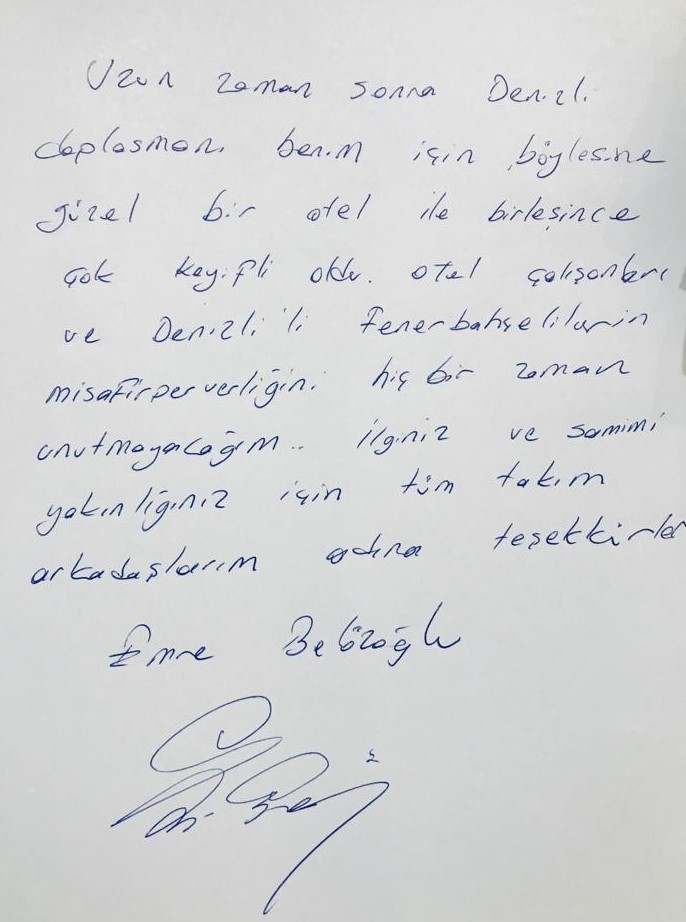 Uzun zaman sonra Denizli
deplasmanı benim için böylesine
güzel bir otel ile birleşince
çok keyifli oldu. otel çalışanları
ve Denizli'li Fenerbahçelilerin
misafirperverliğini hiç bir zaman
unutmayacağım.. ilginiz ve samimi
yakınlığınız için tüm takım
arkadaşlarım adına teşekkürler
Emre Belözoğlu